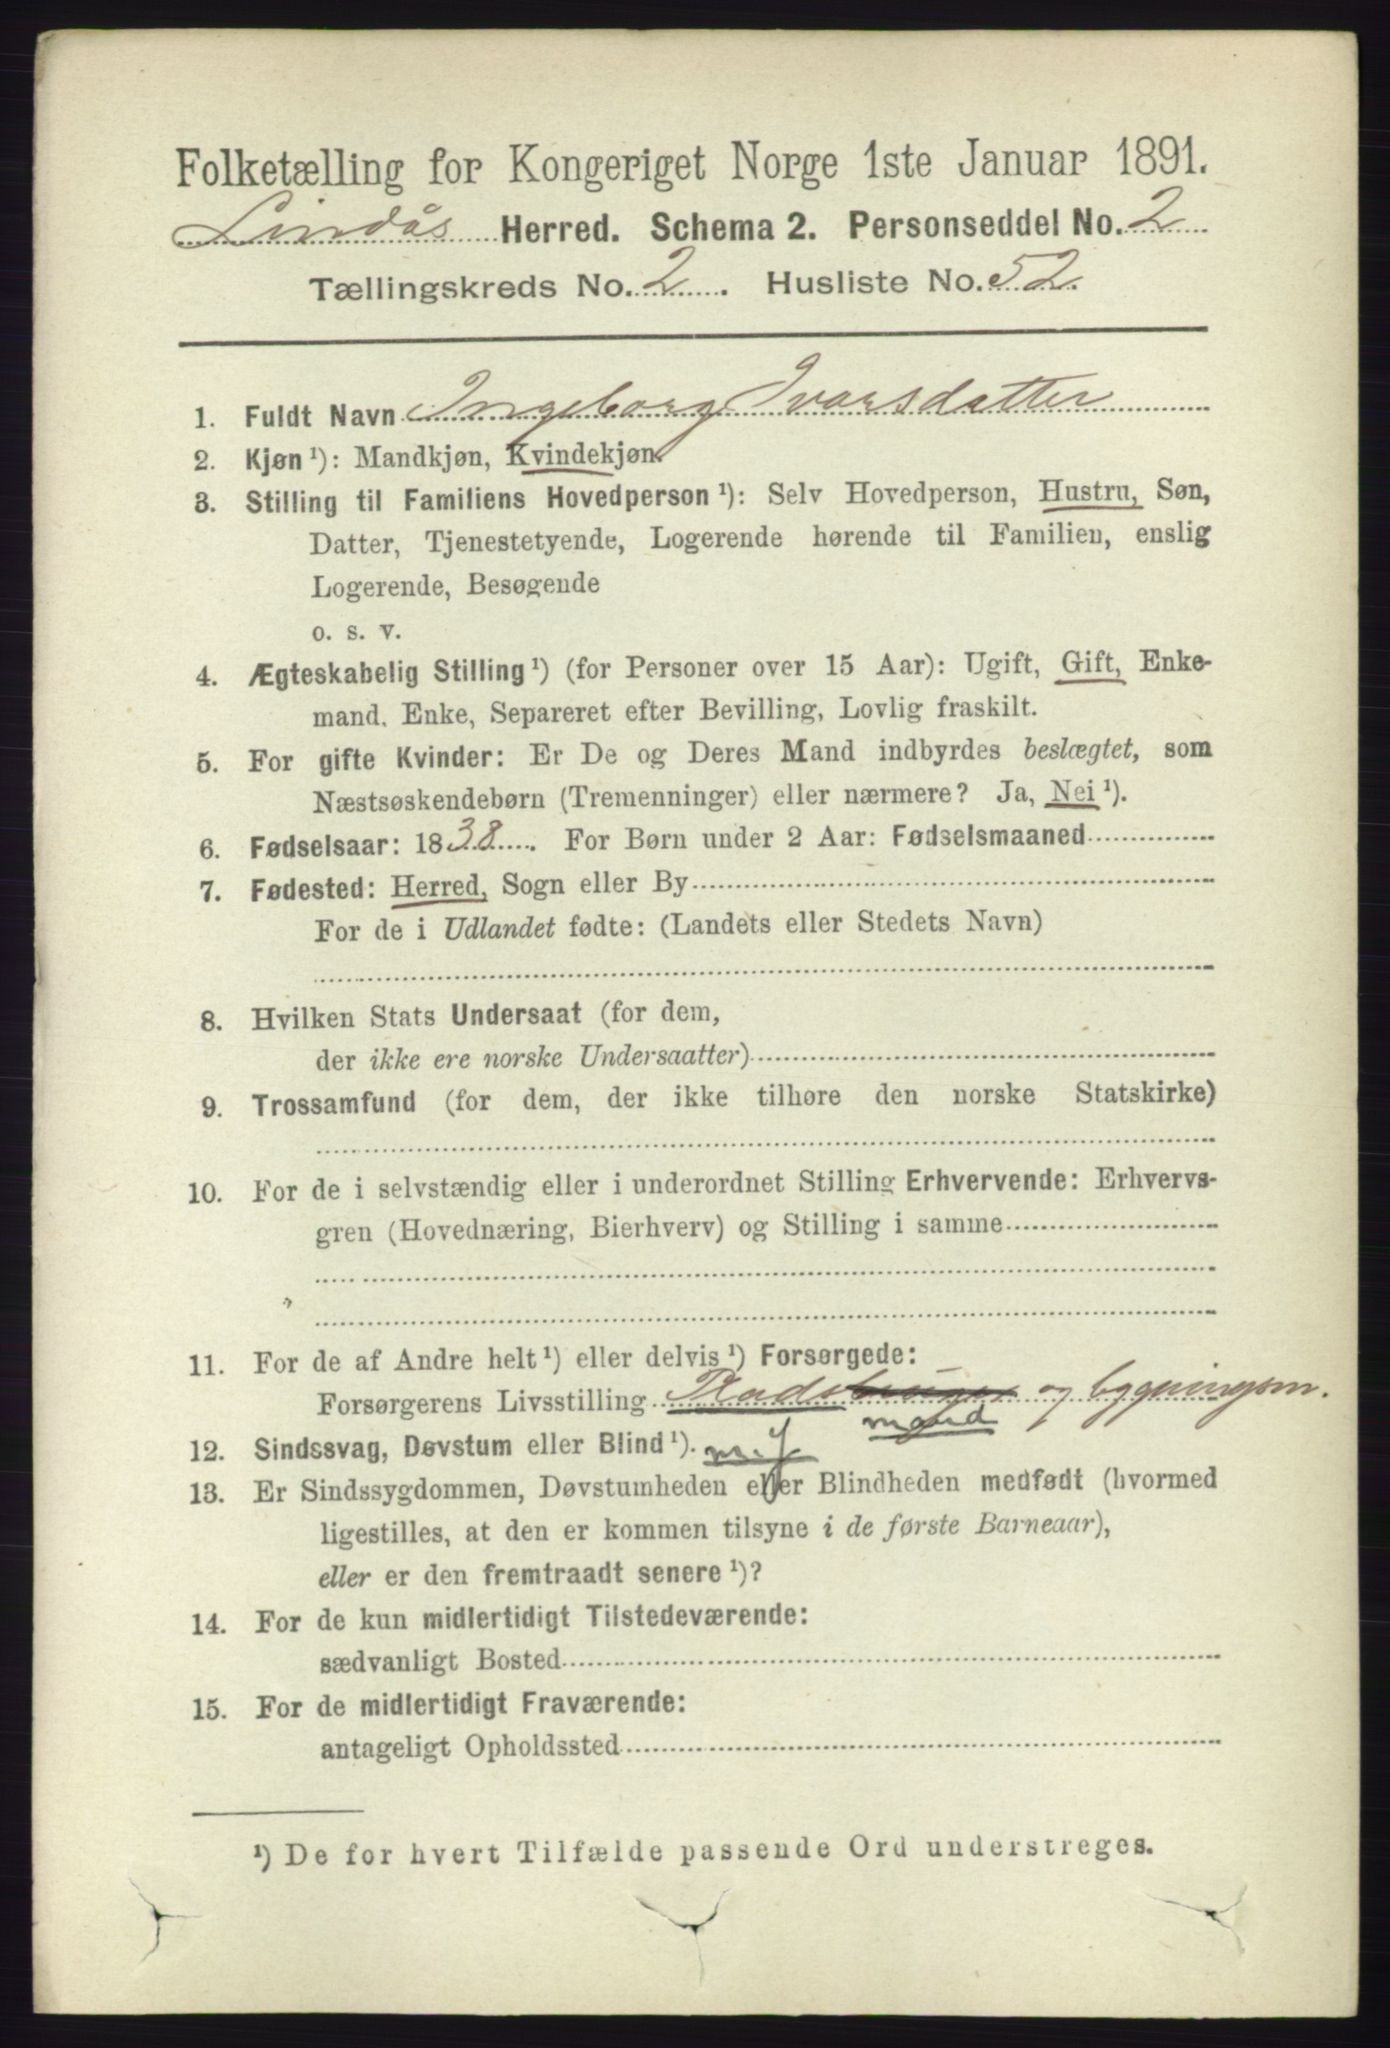 Folketælling for Kongeriget Norge 1ste Januar 1891.
Lindås Herred. Schema 2. Personseddel No. 2
Tællingskreds No. 2. Husliste No. 52.
1. Fuldt Navn Ingeborg Ivarsdatter
2. Kjøn ¹): Mandkjøn, Kvindekjøn.
3. Stilling til Familiens Hovedperson ¹): Selv Hovedperson, Hustru, Søn,
Datter, Tjenestetyende, Logerende hørende til Familien, enslig
Logerende, Besøgende
o. s. v.
4. Ægteskabelig Stilling ¹) (for Personer over 15 Aar): Ugift, Gift, Enke-
mand, Enke, Separeret efter Bevilling, Lovlig fraskilt.
5. For gifte Kvinder: Er De og Deres Mand indbyrdes beslægtet, som
Næstsøskendebørn (Tremenninger) eller nærmere? Ja, Nei ¹).
6. Fødselsaar: 1838. For Børn under 2 Aar: Fødselsmaaned
7. Fødested: Herred, Sogn eller By
For de i Udlandet fødte: (Landets eller Stedets Navn)
8. Hvilken Stats Undersaat (for dem,
der ikke ere norske Undersaatter)
9. Trossamfund (for dem, der ikke tilhøre den norske Statskirke)
10. For de i selvstændig eller i underordnet Stilling Erhvervende: Erhvervs-
gren (Hovednæring, Bierhverv) og Stilling i samme
11. For de af Andre helt ¹) eller delvis ¹) Forsørgede:
Forsørgerens Livsstilling Pladsbruger og bygningsm.
mand
12. Sindssvag, Døvstum eller Blind ¹).
13. Er Sindssygdommen, Døvstumheden eller Blindheden medfødt (hvormed
ligestilles, at den er kommen tilsyne i de første Barneaar),
eller er den fremtraadt senere ¹)?
14. For de kun midlertidigt Tilstedeværende:
sædvanligt Bosted
15. For de midlertidigt Fraværende:
antageligt Opholdssted
¹) De for hvert Tilfælde passende Ord understreges.